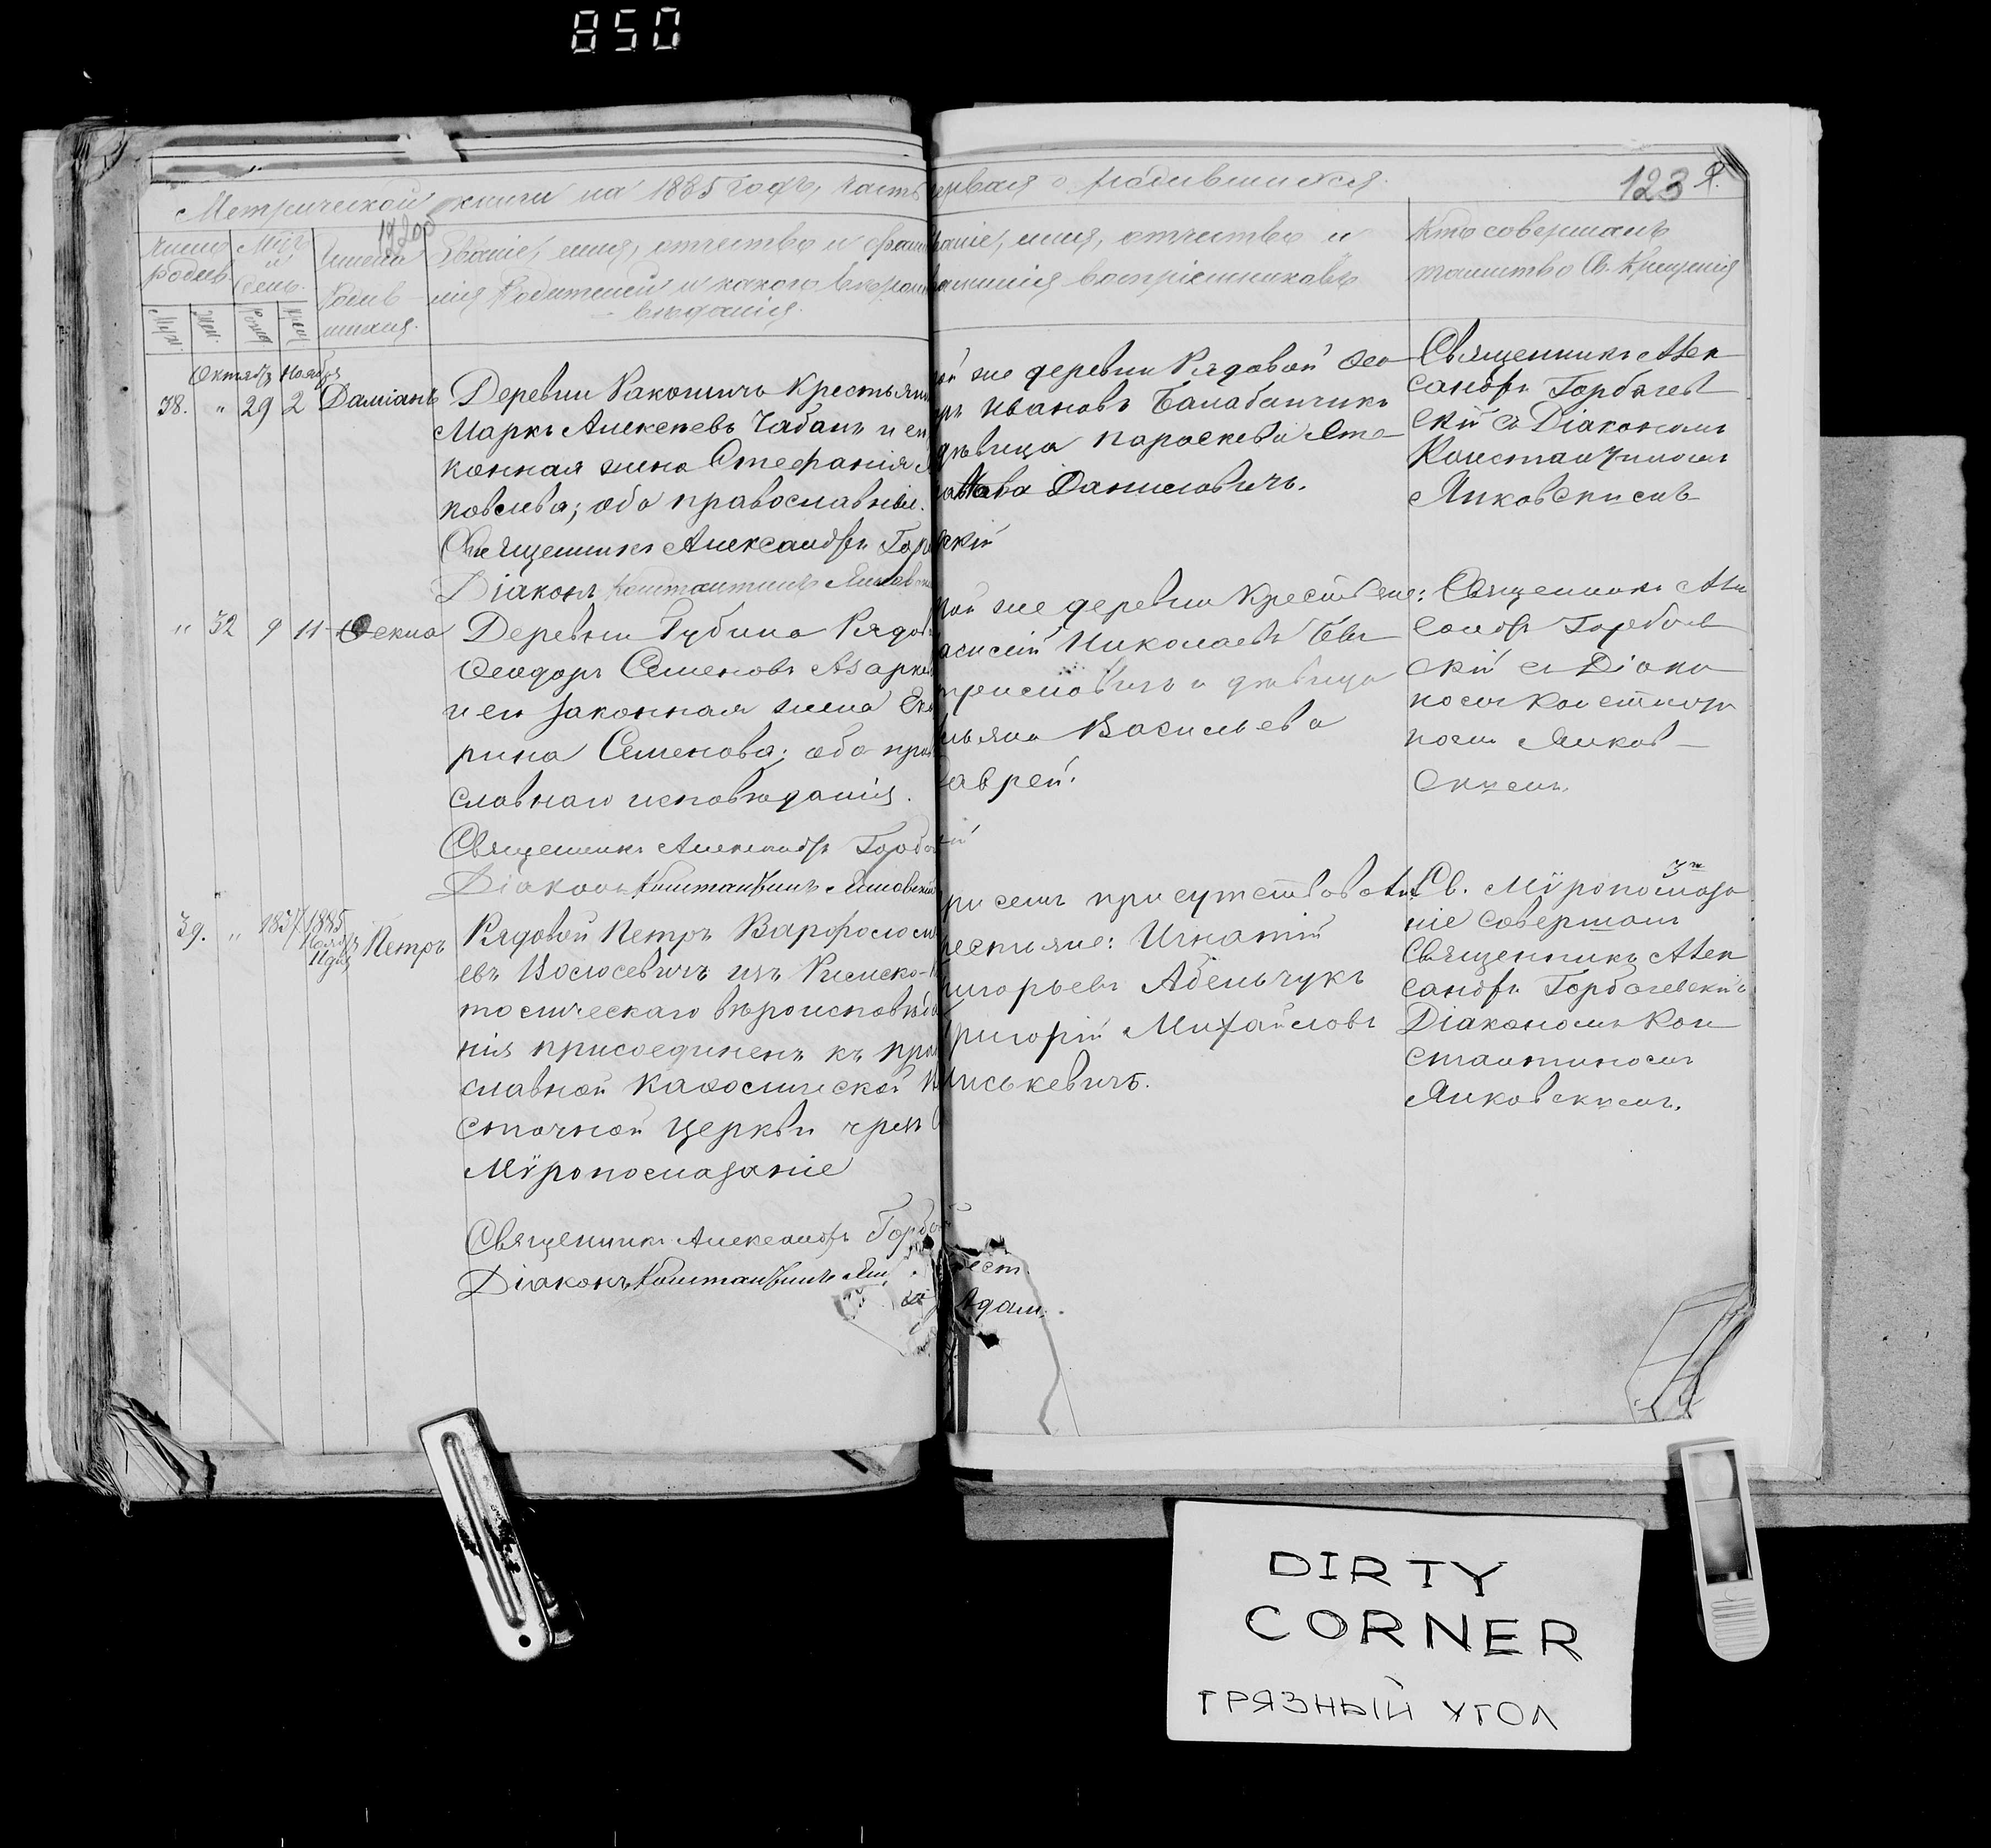 850
Метрической книги на 1885 годъ, часть
ервая о родившихся.
123
Число родив
Мѣс. и день.
Имена Родив шихся.
Званіе, имя, отчество и фами
лія Родителей и какого вѣроис
вѣданія.
раніе, имя, отчество и
фамилія воспріемниковъ
Кто совершалъ
таинство Св. Крещенія
Октябрь Ноябрь
38. " 29 2 Даміанъ
Деревни Ракошичъ Крестьянин
Маркъ Алексѣевъ Чабанъ и ег
конная жена Стефанія
ковлева; оба православные.
Священникъ Александръ Гор
Діаконъ Константинъ Янковс
ой же деревни Рядовой Ѳео
ръ Ивановъ Балабанчикъ
дѣвица Параскева
Даниловичъ.
скій
Священникъ Алек
сандръ Горбачев
скій съ Діакономъ
Константиномъ
Янковскимъ
" 32 9 11 Ѳекла
Деревни Губина Рядов
Ѳеодоръ Семеновъ Азарк
и его законная жена Ека
рина Семенова; оба прав
славнаго исповѣданія.
Священникъ Александръ Горба
Діаконъ Константинъ Янковскій
той же деревни Крестьяне:
асилій Николаевъ
и дѣвица
льяна Васильева
аврей.
Священникъ Алек
сандръ Горбачев
скій съ Діако
номъ Константи
номъ Янков
скимъ.
39. " 1837 1885 Ноябр. Петръ
Рядовой Петръ Варфоломе
евъ Иосифевичъ изъ Римско-
толическаго вѣроисповѣда
нія присоединенъ къ пра
славной Каѳолической
сточной Церкви чрезъ
Мѵропомазаніе
Священникъ Александръ Горба
Діаконъ Константинъ Ян
ри семъ присутствовали
рестьяне: Игнатій
ригорьевъ Абельчукъ
ригорій Михайловъ
иськевичъ.
рест.
Адам.
Св. Мѵропомаза
ніе совершалъ
Священникъ Алек
сандръ Горбачевскій съ
Діакономъ Кон
стантиномъ
Янковскимъ.
DIRTY
CORNER
ГРЯЗНЫЙ УГОЛ